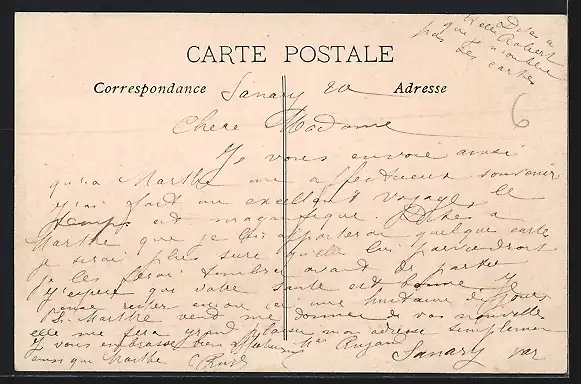 Dites a
Melle Robert
que je n'oublie
pas ses cartes
CARTE POSTALE
Correspondance
Adresse
6
Sanary
Chere Madame
Je vous envoie ainsi
qu'a Marthe un affectueux souvenir
j'ai fait un excellent voyage, le
temps est magnifique. Dites a
Marthe que je lui apporterai quelque carte
je serai plus sure qu'elle lui parviendront
je les ferai timbrer avant de partir
J'espere que votre santé est bonne. Je
pense rester encore ici une huitaine de jours
Si Marthe veut me donner de vos nouvelle
elle me fera grand plaisir mon adresse simplement
Je vous embrasse bien
ainsi que Marthe
Sanary Var